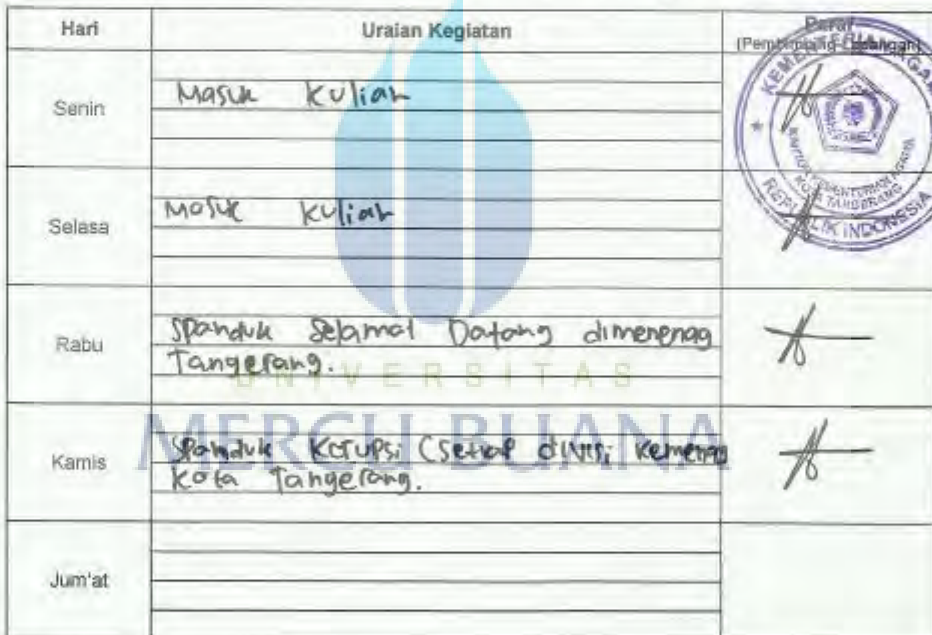 Hari Uraian Kegiatan Paraf
(Pembimbing Lapangan)
Senin Masuk Kuliah
Selasa Masuk Kuliah
Rabu Spanduk Selamat Datang dimenenag
Tangerang.
UNIVERSITAS
MERCU BUANA
Kamis Spanduk Korupsi (setiap divisi Kemenag
Kota Tangerang.
Jum'at
KEMENTERIAN AGAMA
KANTOR KEMENTERIAN AGAMA
KOTA TANGERANG
REPUBLIK INDONESIA